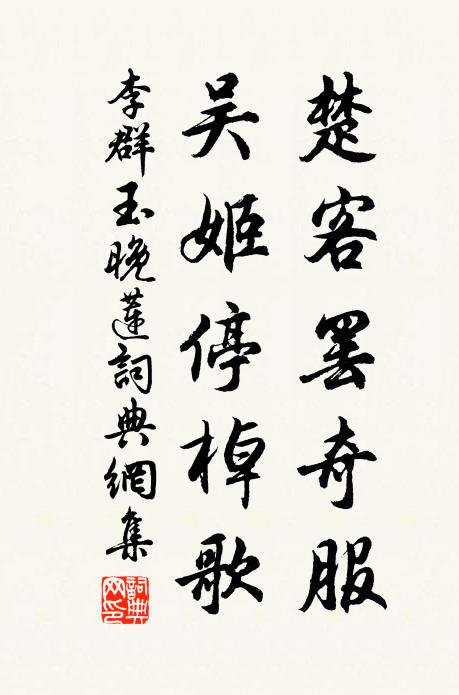 楚客罢奇服
吴姬停棹歌
李群玉晚莲詞典網集
詞典網印